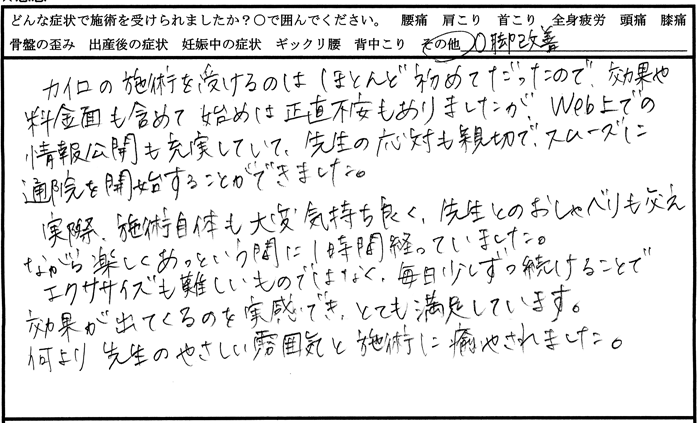 どんな症状で施術を受けられましたか?○で囲んでください。 腰痛 肩こり 首こり 全身疲労 頭痛 膝痛
骨盤の歪み 出産後の症状 妊娠中の症状 ギックリ腰 背中こり その他 O脚改善
カイロの施術を受けるのは ほとんど初めてだったので、効果や
料金面も含めて 始めは正直不安もありましたが、Web上での
情報公開も充実していて、先生の応対も親切で、スムーズに
通院を開始することができました。
実際、施術自体も大変気持ち良く、先生とのおしゃべりも交え
ながら楽しくあっという間に1時間経っていました。
エクササイズも難しいものではなく、毎日少しずつ続けることで
効果が出てくるのを実感でき、とても満足しています。
何より先生のやさしい雰囲気と施術に癒やされました。